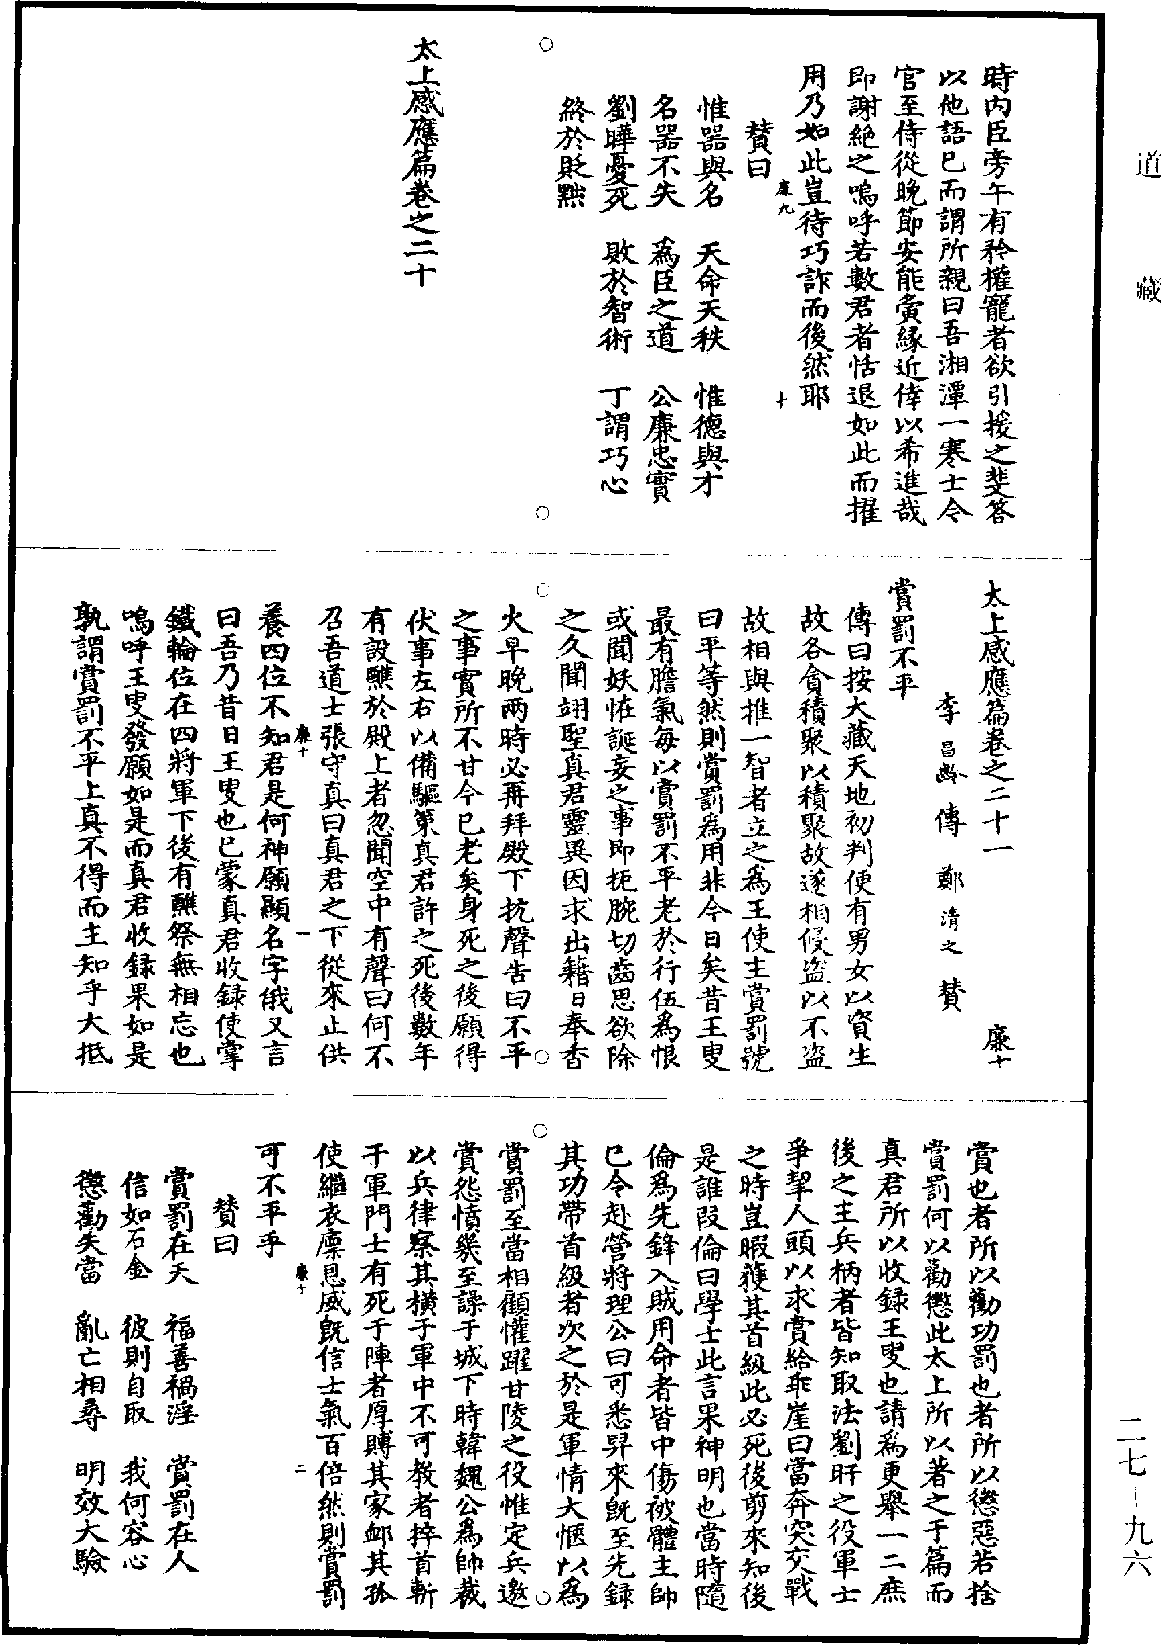 道藏
時內臣旁午有矜權寵者欲引援之斐答
以他語已而謂所親曰吾湘潭一寒士今
官至侍從晚節安能夤緣近倖以希進哉
即謝絕之嗚呼若數君者恬退如此而擢
用乃如此豈待巧詐而後然耶
廉九
十
贊曰
惟器與名　天命天秩　惟德與才
名器不失　為臣之道　公廉忠實
劉曄憂死　敗於智術　丁謂巧心
終於貶黜
太上感應篇卷之二十
太上感應篇卷之二十一　廉十
李昌齡傳　鄭清之贊
賞罰不平
傳曰按大藏天地初判便有男女以資生
故各貪積聚以積聚故遂相侵盜以不盜
故相與推一智者立之為王使主賞罰號
曰平等然則賞罰為用非今日矣昔王叟
最有膽氣每以賞罰不平老於行伍為恨
或聞妖怪誕妄之事即扼腕切齒思欲除
之久聞翊聖真君靈異因求出籍日奉香
火早晚兩時必再拜殿下抗聲告曰不平
之事實所不甘今已老矣身死之後願得
伏事左右以備驅策真君許之死後數年
有設醮於殿上者忽聞空中有聲曰何不
召吾道士張守真曰真君之下從來止供
廉十
一
養四位不知君是何神願顯名字俄又言
曰吾乃昔日王叟也已蒙真君收錄使掌
鐵輪位在四將軍下後有醮祭無相忘也
嗚呼王叟發願如是而真君收錄果如是
孰謂賞罰不平上真不得而主知乎大抵
賞也者所以勸功罰也者所以懲惡若捨
賞罰何以勸懲此太上所以著之于篇而
真君所以收錄王叟也請為更舉一二庶
後之主兵柄者皆知取法劉旰之役軍士
爭挈人頭以求賞給乖崖曰當奔突交戰
之時豈暇獲其首級此必死後剪來知後
是誰段倫曰學士此言果神明也當時隨
倫為先鋒入賊用命者皆中傷被體主帥
已令赴營將理公曰可悉舁來既至先錄
其功帶首級者次之於是軍情大愜以為
賞罰至當相顧懽躍甘陵之役惟定兵邀
賞怨憤幾至譟于城下時韓魏公為帥裁
以兵律察其橫于軍中不可教者捽首斬
于軍門士有死于陣者厚賻其家卹其孤
使繼衣廩恩威既信士氣百倍然則賞罰
廉十
二
可不平乎
贊曰
賞罰在天　福善禍淫　賞罰在人
信如石金　彼則自取　我何容心
懲勸失當　亂亡相尋　明效大驗
二七－九六